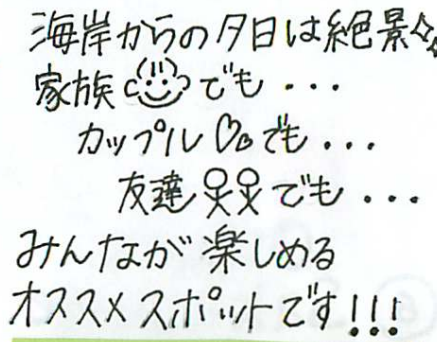 海岸からの夕日は絶景
家族でも・・・
カップル♡♡でも・・・
友達でも・・・
みんなが楽しめる
オススメスポットです!!!